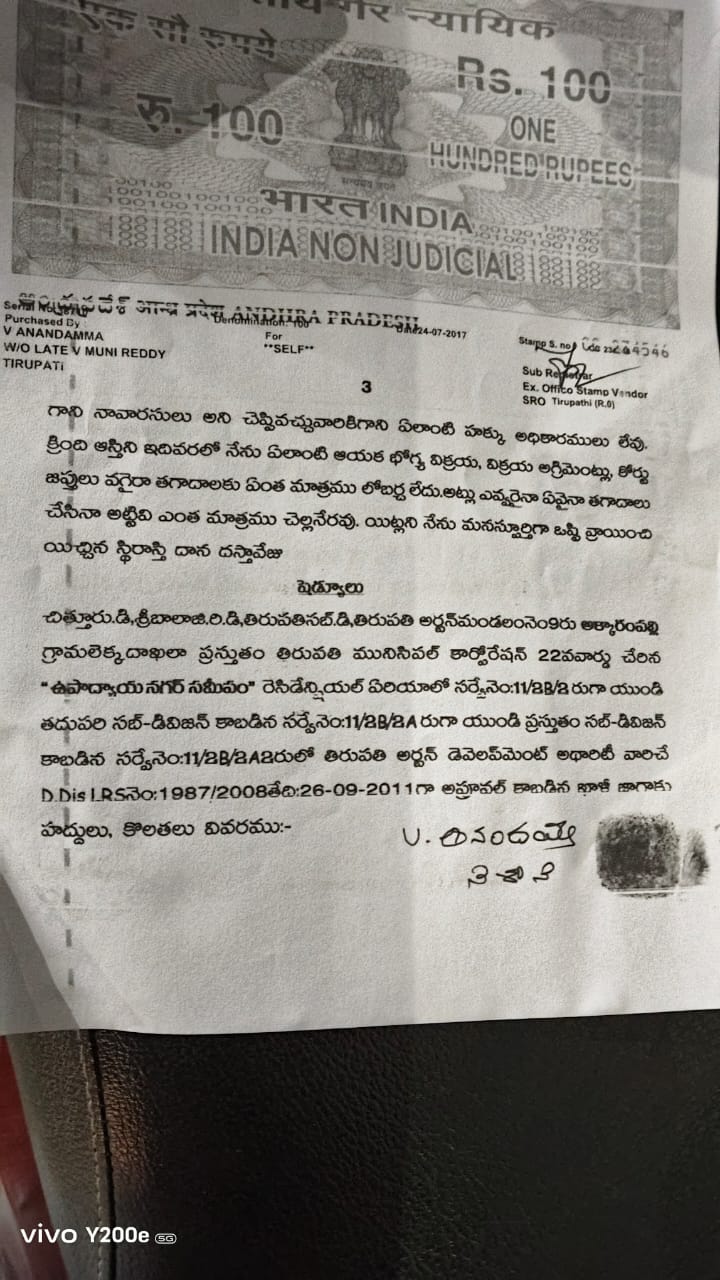 गैर न्यायिक
एक सौ रुपये
Rs. 100
रु. 100
ONE
HUNDRED RUPEES
सत्यमेव जयते
भारत INDIA
INDIA NON JUDICIAL
आन्ध्र प्रदेश ANDHRA PRADESH
Denomination: 100
Date: 24-07-2017
Purchased By
For
V ANANDAMMA
**SELF**
W/O LATE V MUNI REDDY
TIRUPATI
Stamp S. no
Sub Registrar
Ex. Office Stamp Vendor
SRO Tirupathi (R.O)
3
గాని నావారసులు అని చెప్పివచ్చువారికిగాని ఏలాంటి హక్కు అధికారములు లేవు.
క్రింది ఆస్తిని ఇదివరలో నేను ఏలాంటి ఆయక భోగ్య విక్రయ, విక్రయ అగ్రిమెంట్లు, కోర్టు
జప్తులు వగైరా తగాదాలకు ఏంత మాత్రము లోబర్చ లేదు.అట్లు ఎవ్వరైనా ఏవైనా తగాదాలు
చేసినా అట్టివి ఎంత మాత్రము చెల్లనేరవు. యిట్లని నేను మనస్పూర్తిగా ఒప్పి వ్రాయించి
యిచ్చిన స్థిరాస్తి దాన దస్తావేజు
షెడ్యూలు
చిత్తూరు.డి,శ్రీబాలాజి.రి.డి,తిరుపతిసబ్.డి,తిరుపతి అర్బన్‌మండలంనెం9రు అక్కారంపల్లి
గ్రామలెక్కదాఖలా ప్రస్తుతం తిరుపతి మునిసిపల్ కార్పోరేషన్ 22వవార్డు చేరిన
"ఉపాధ్యాయ నగర్ సమీపం" రెసిడేన్షియల్ ఏరియాలో సర్వేనెం:11/2B/2 రుగా యుండి
తదుపరి సబ్-డివిజన్ కాబడిన సర్వేనెం:11/2B/2A రుగా యుండి ప్రస్తుతం సబ్-డివిజన్
కాబడిన సర్వేనెం:11/2B/2A2రులో తిరుపతి అర్బన్ డెవెలప్‌మెంట్ అథారిటీ వారిచే
D.Dis LRSనెం:1987/2008తేది:26-09-2011గా అప్రూవల్ కాబడిన ఖాళీ జాగాకు
హద్దులు, కొలతలు వివరము:-
V. ఆనందమ్మ
vivo Y200e 5G